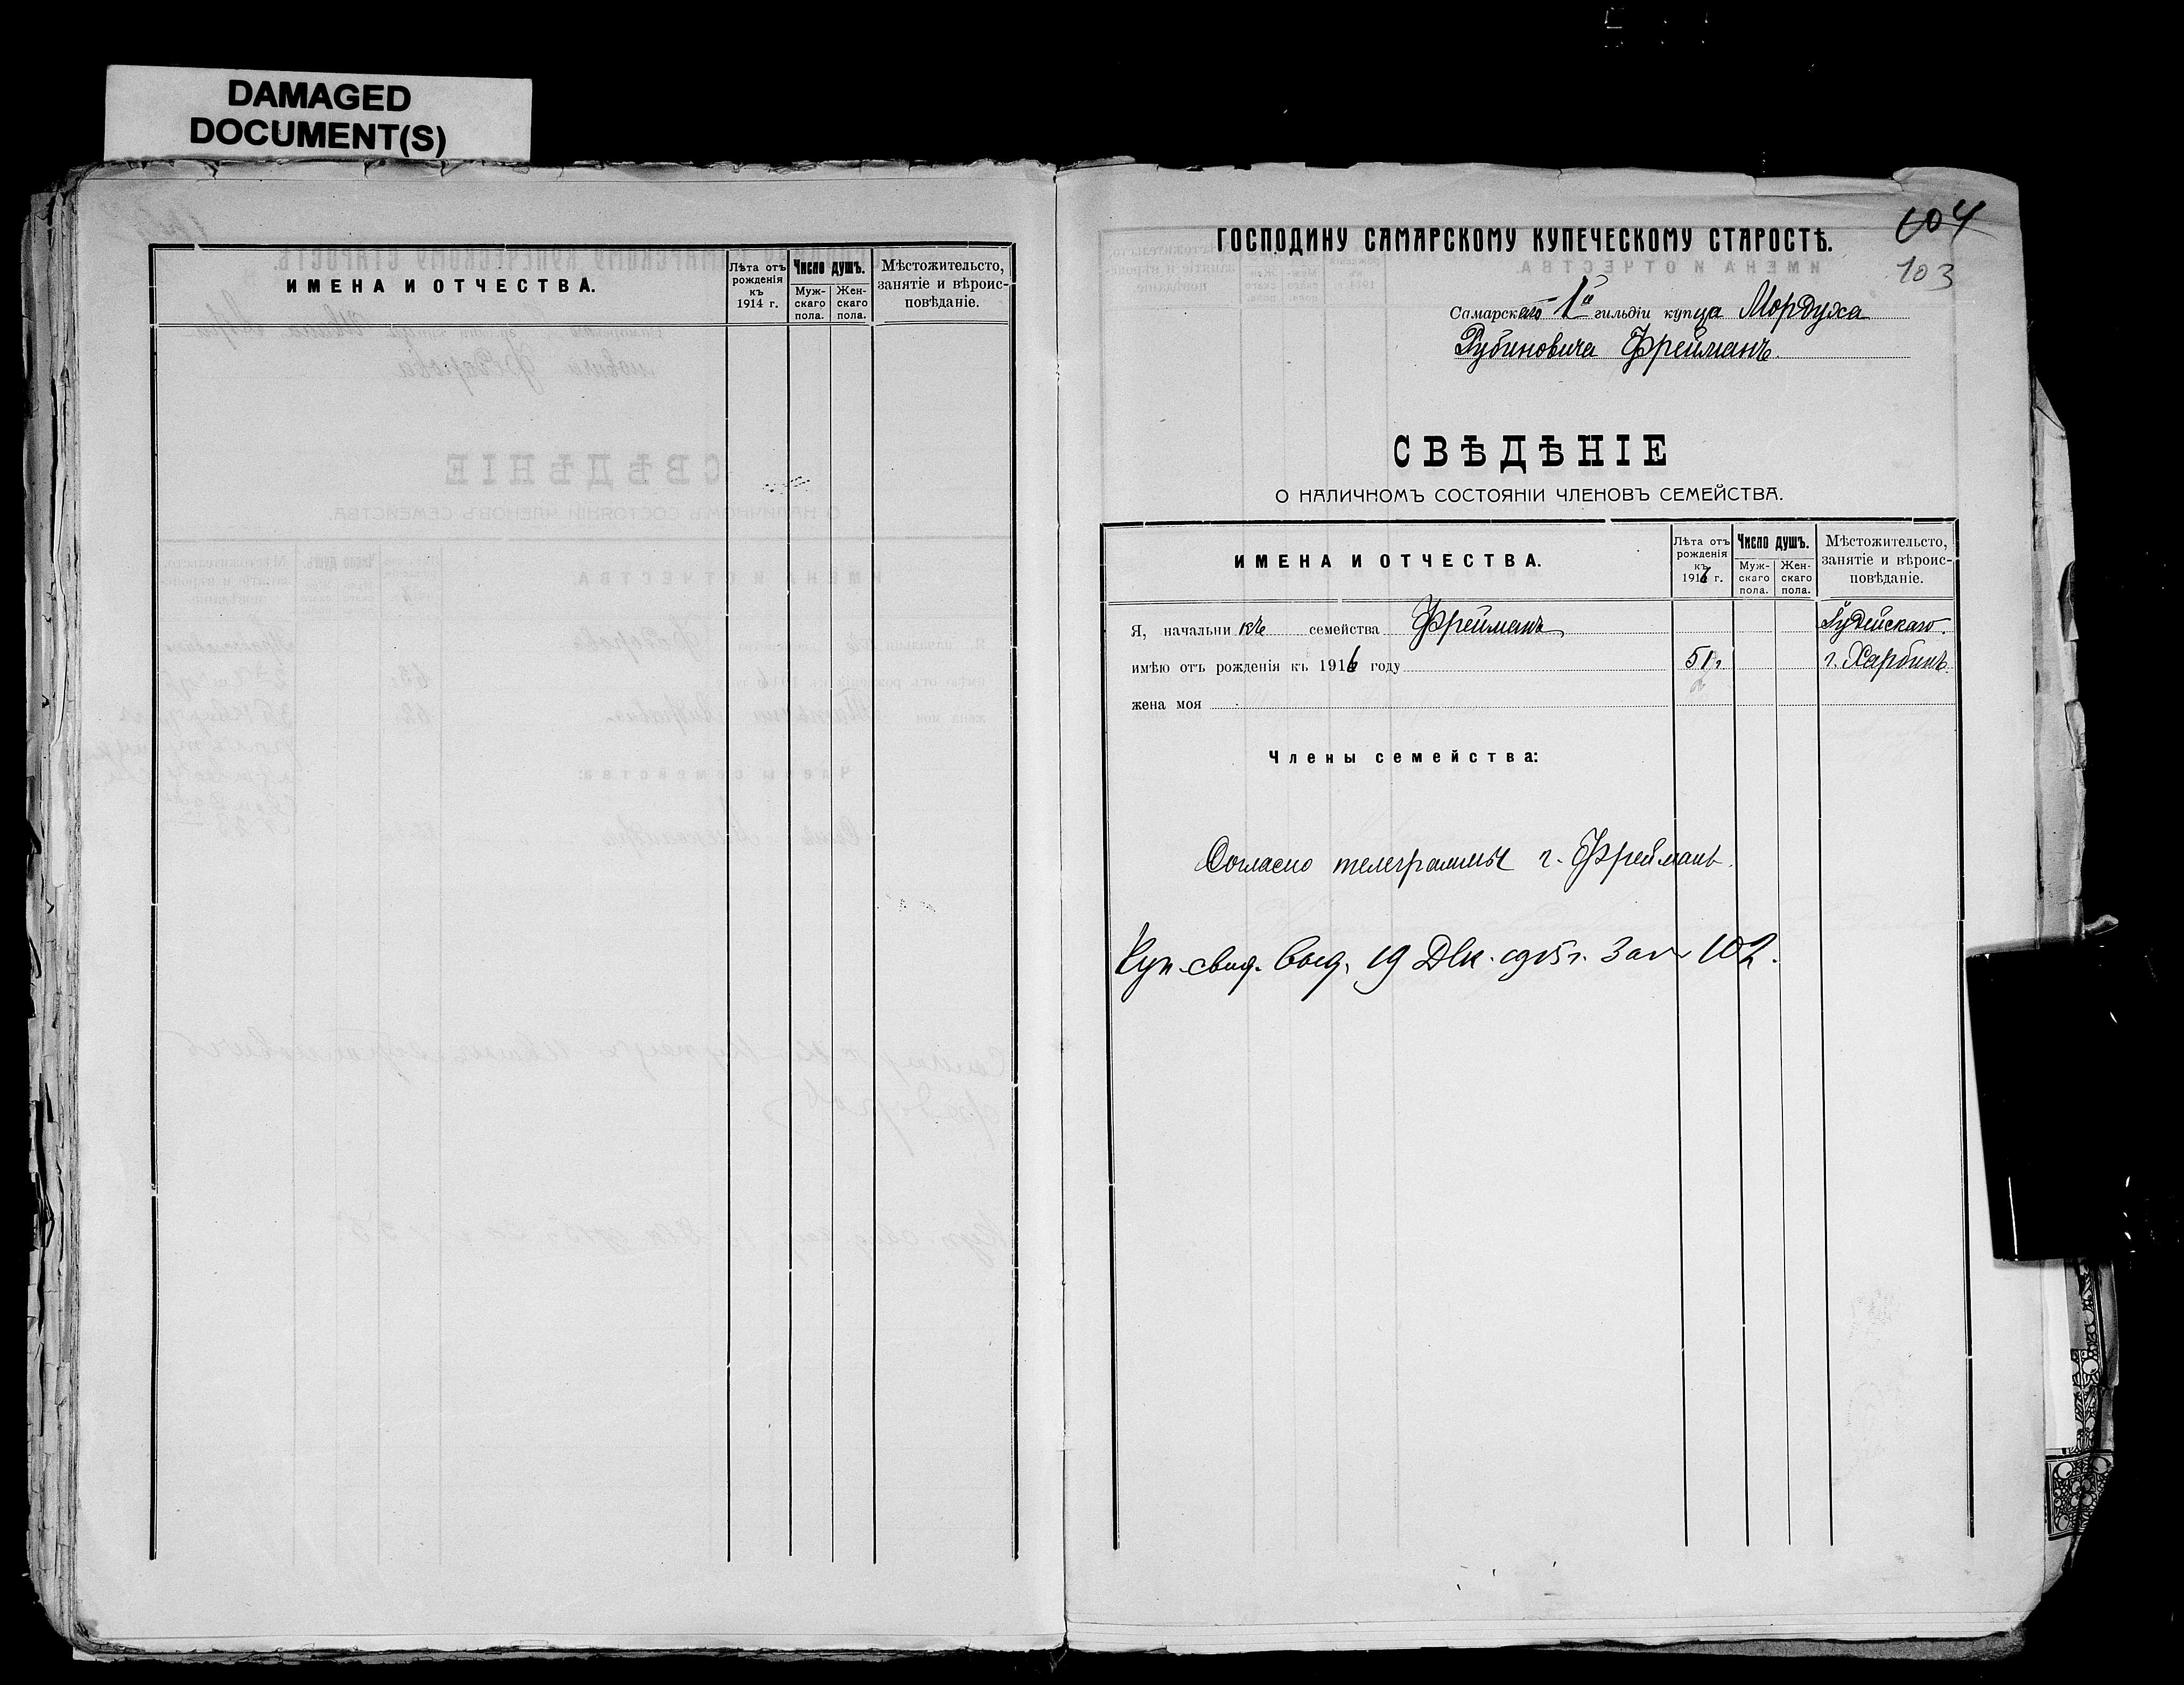 DAMAGED
DOCUMENT(S)
ИМЕНА И ОТЧЕСТВА.
Лѣта отъ рожденія къ 1914 г.
Число душъ.
Муж-скаго пола.
Жен-скаго пола.
Мѣстожительсто, занятіе и вѣроис-повѣданіе.
104
103
ГОСПОДИНУ САМАРСКОМУ КУПЕЧЕСКОМУ СТАРОСТѢ.
Самарскаго 1й гильдіи купца Мордуха
Рубиновича Фрейманъ.
СВѢДѢНІЕ
О НАЛИЧНОМЪ СОСТОЯНІИ ЧЛЕНОВЪ СЕМЕЙСТВА.
ИМЕНА И ОТЧЕСТВА.
Лѣта отъ рожденія къ 1916 г.
Число душъ.
Муж-скаго пола.
Жен-скаго пола.
Мѣстожительсто, занятіе и вѣроис-повѣданіе.
Я, начальникъ семейства Фрейманъ Іудейскаго.
имѣю отъ рожденія къ 1916 году 51 г. г. Харбинъ
жена моя
Члены семейства:
Согласно телеграммы г. Фрейманъ.
Куп. свид. выд. 19 Дек. 1915 г. за № 102.